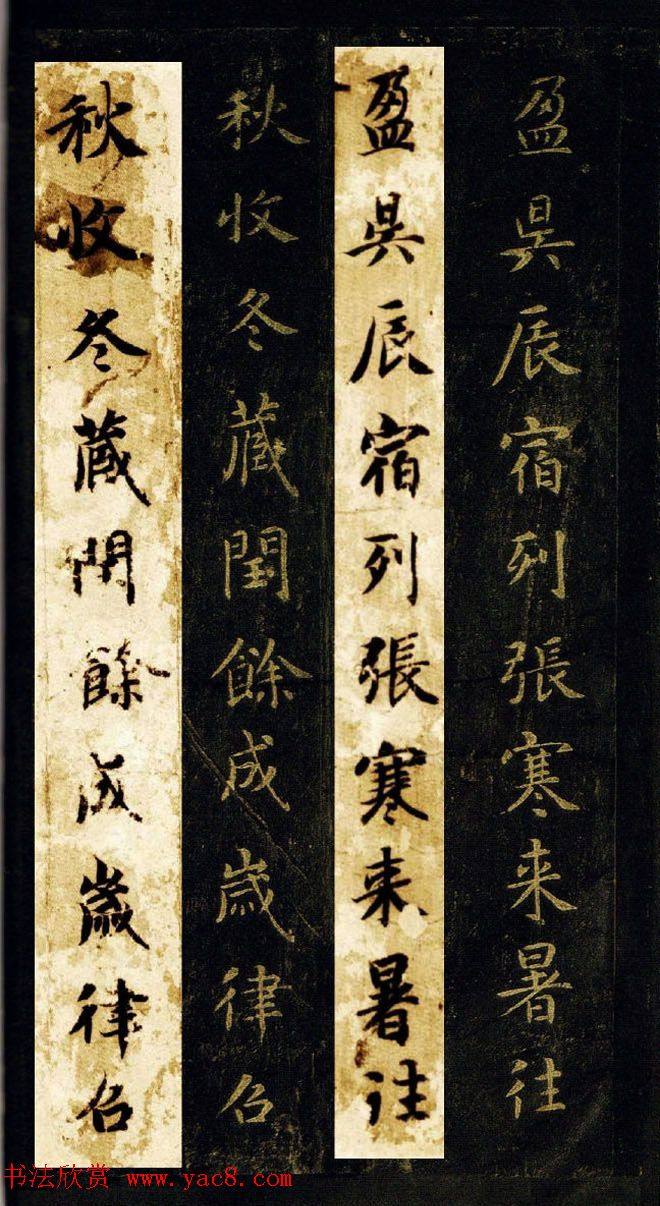 盈昃辰宿列張寒来暑往
盈昃辰宿列張寒来暑往
秋收冬蔵閏餘成歳律吕
秋收冬蔵閏餘成歳律吕
书法欣赏 www.yac8.com